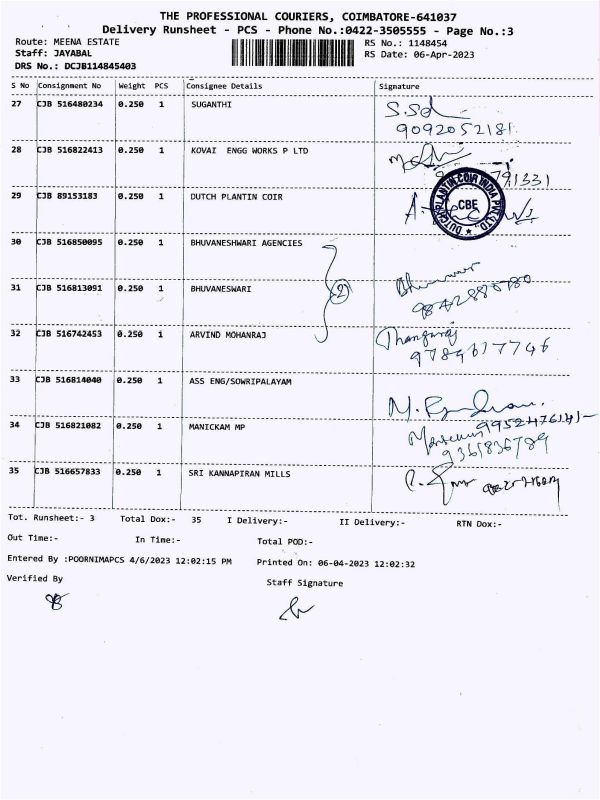 THE PROFESSIONAL COURIERS, COIMBATORE-641037
Delivery Runsheet - PCS - Phone No.:0422-3505555 - Page No.:3
Route: MEENA ESTATE RS No.: 1148454
Staff: JAYABAL RS Date: 06-Apr-2023
DRS No.: DCJB114845403
S No Consignment No Weight PCS Consignee Details Signature
27 CJB 516480234 0.250 1 SUGANTHI
9092052181
28 CJB 516822413 0.250 1 KOVAI ENGG WORKS P LTD
91331
29 CJB 89153183 0.250 1 DUTCH PLANTIN COIR
DUTCH PLANTIN COIR INDIA PVT. LTD.,
CBE
30 CJB 516850095 0.250 1 BHUVANESHWARI AGENCIES
31 CJB 516813091 0.250 1 BHUVANESWARI
2
9842885780
32 CJB 516742453 0.250 1 ARVIND MOHANRAJ Thangaraj
9789617746
33 CJB 516814040 0.250 1 ASS ENG/SOWRIPALAYAM
34 CJB 516821082 0.250 1 MANICKAM MP
9952476141-
9361836789
35 CJB 516657833 0.250 1 SRI KANNAPIRAN MILLS
Tot. Runsheet:- 3 Total Dox:- 35 I Delivery:- II Delivery:- RTN Dox:-
Out Time:- In Time:- Total POD:-
Entered By :POORNIMAPCS 4/6/2023 12:02:15 PM Printed On: 06-04-2023 12:02:32
Verified By Staff Signature